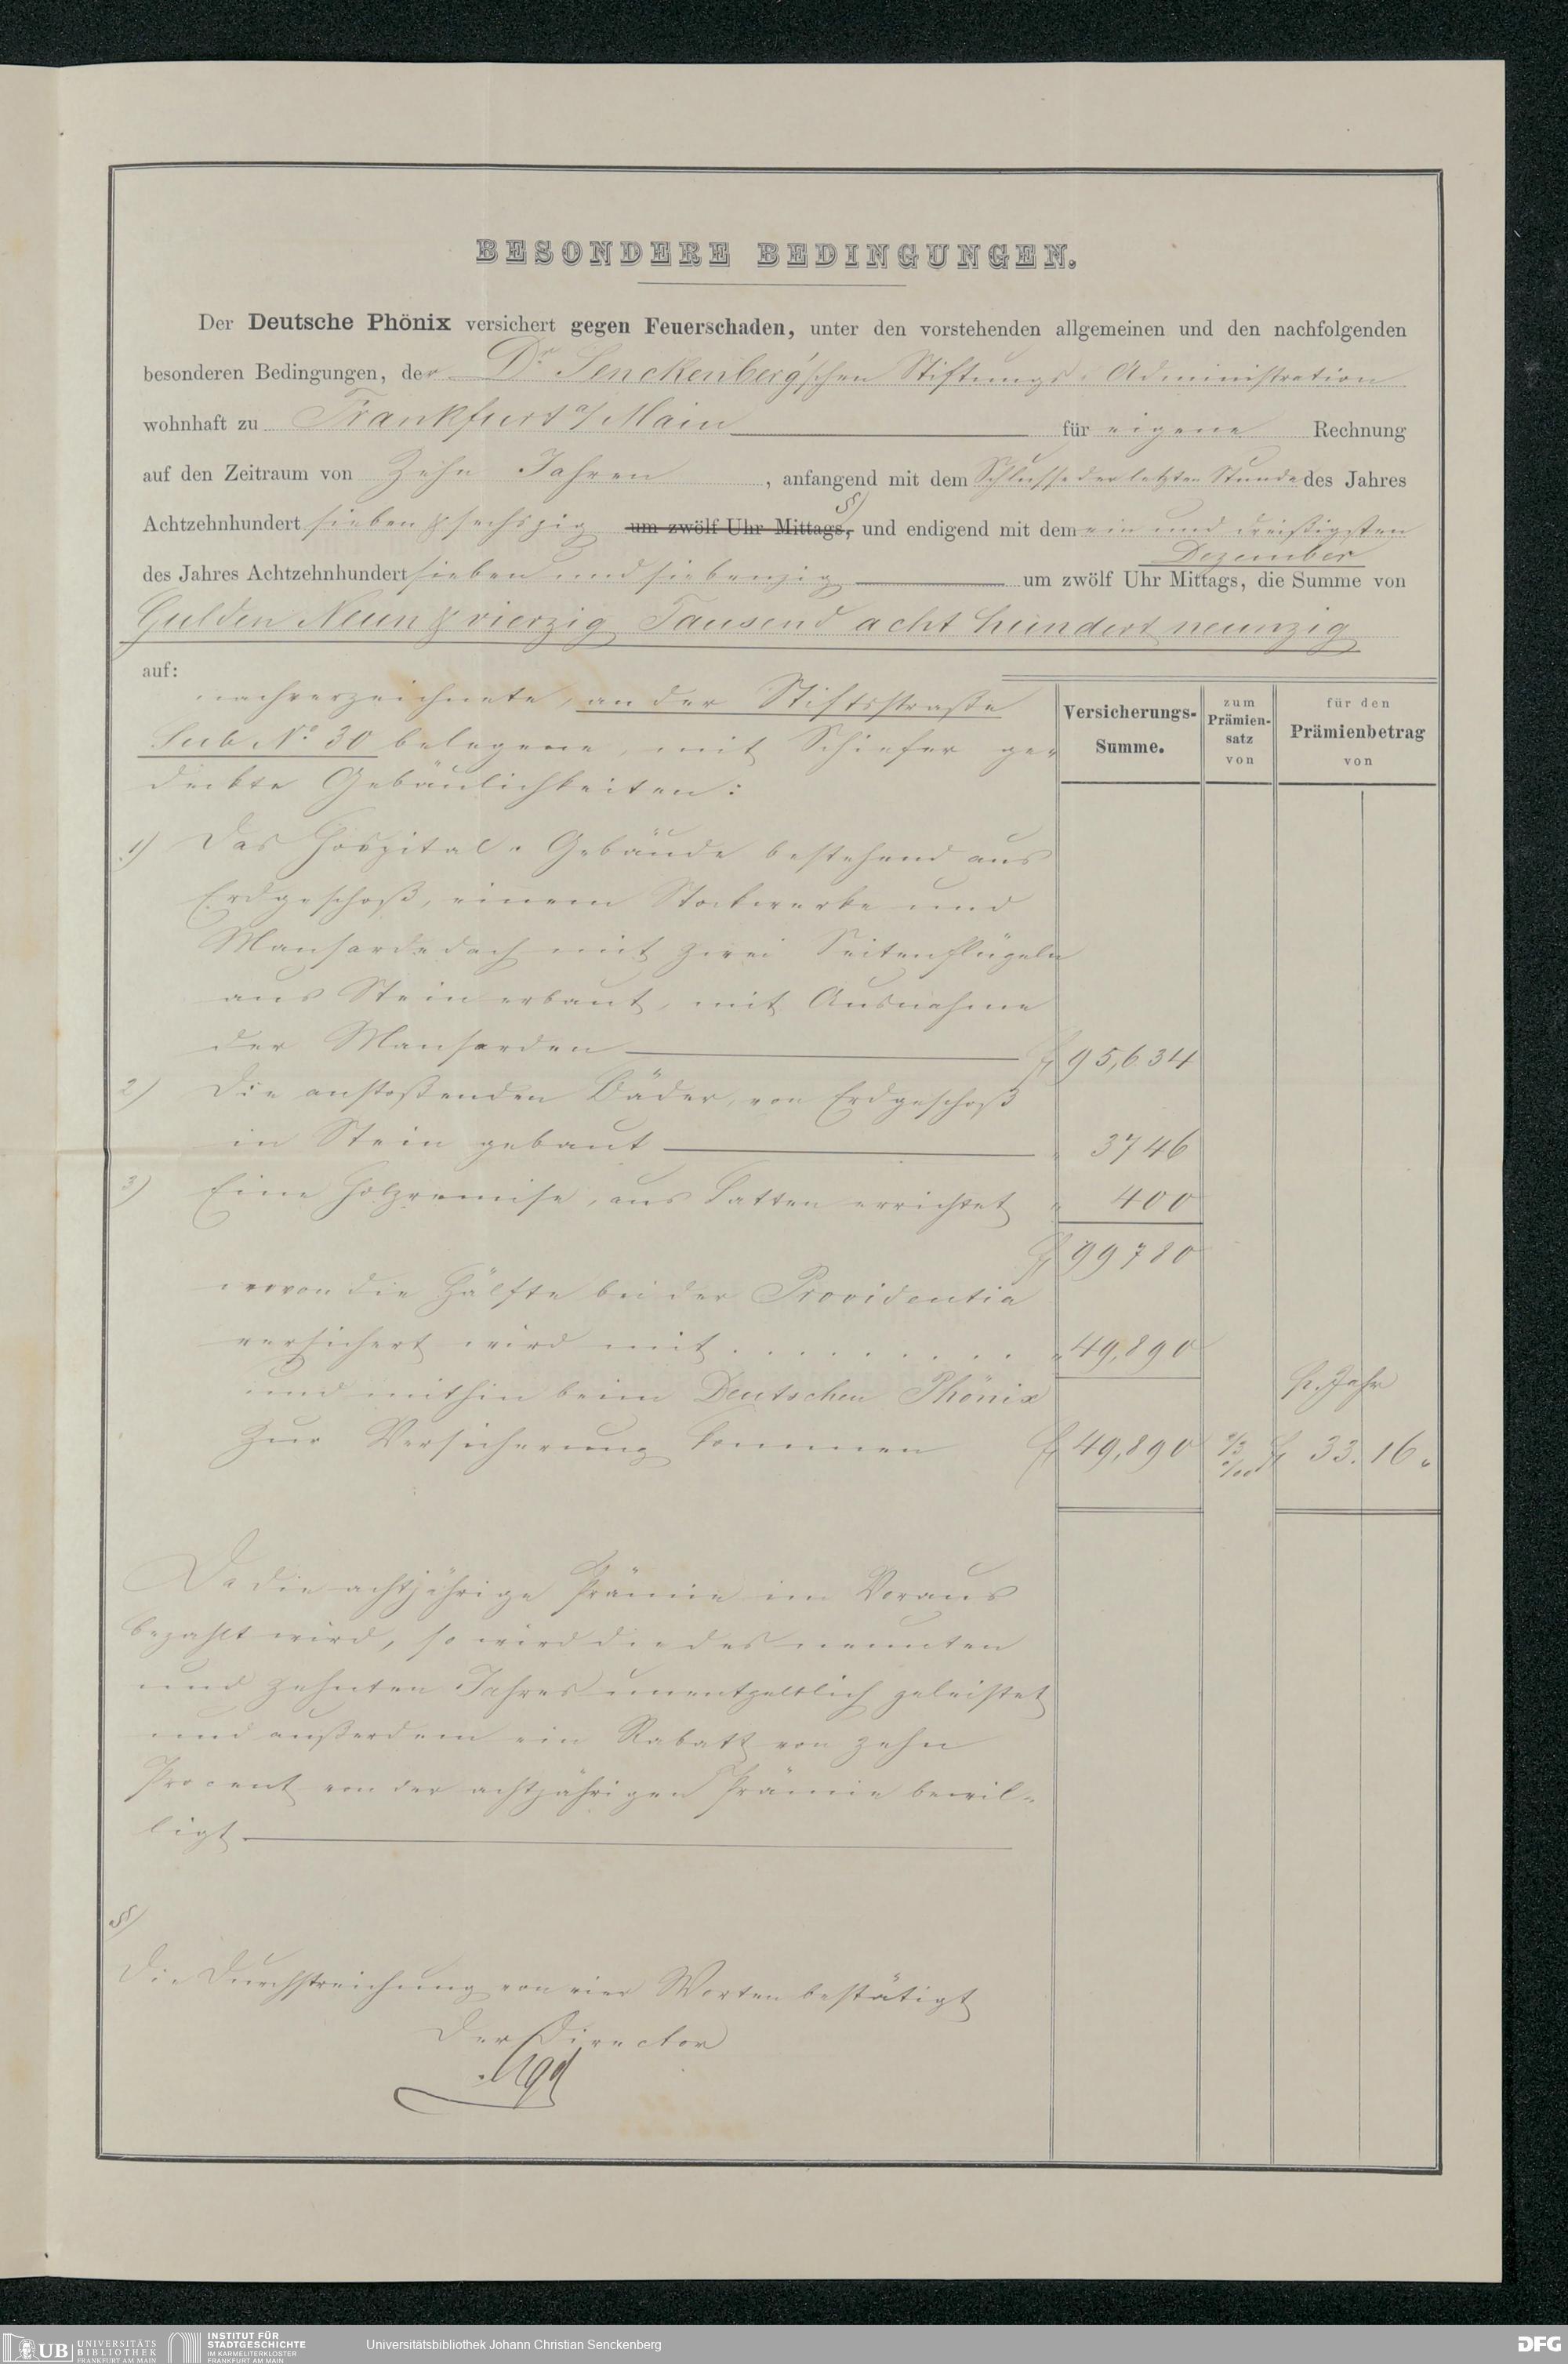 BESONDERE BEDINGUNGEN.
Der Deutsche Phönix versichert gegen Feuerschaden, unter den vorstehenden allgemeinen und den nachfolgenden
besonderen Bedingungen, der Dr Senckenberg'schen Stiftungs-Administration
wohnhaft zu Frankfurt a/Main für eigene Rechnung
auf den Zeitraum von Zehn Jahren, anfangend mit dem Schlusse der letzten Stunde des Jahres
Achtzehnhundert sieben & sechszig um zwölf Uhr Mittags, §) und endigend mit dem ein und dreißigsten
Dezember
des Jahres Achtzehnhundert sieben und siebenzig um zwölf Uhr Mittags, die Summe von
Gulden Neun & vierzig Tausend acht hundert neunzig
auf:
nachverzeichnete, an der Stiftsstraße
Sub No 30 belegene, mit Schiefer ge-
deckte Gebäulichkeiten:
Versicherungs-Summe.
zum Prämien-satz von
für den Prämienbetrag von
1) Das Hospital-Gebäude bestehend aus
Erdgeschoß, einem Stockwerke und
Mansardedach mit zwei Seitenflügeln
aus Stein erbaut, mit Ausnahme
der Mansarden f 95,634
2) Die anstoßenden Bäder, von Erdgeschoß
in Stein gebaut " 3746
3) Eine Holzremise, aus Latten errichtet " 400
f 99780
wovon die Hälfte bei der Providentia
versichert wird mit . . . . . . . . . " 49,890
und mithin beim Deutschen Phönix
p. Jahr
zur Versicherung kommen f 49,890 2/3 ‰ f 33. 16 "
Da die achtjährige Prämie im Voraus
bezahlt wird, so wird die des neunten
und zehnten Jahres unentgeltlich geleistet
und außerdem ein Rabatt von zehn
Procent von der achtjährigen Prämie bewil-
ligt.
§)
Die Durchstreichung von vier Worten bestätigt
Der Director
UB UNIVERSITÄTS BIBLIOTHEK FRANKFURT AM MAIN
INSTITUT FÜR STADTGESCHICHTE IM KARMELITERKLOSTER FRANKFURT AM MAIN
Universitätsbibliothek Johann Christian Senckenberg
DFG